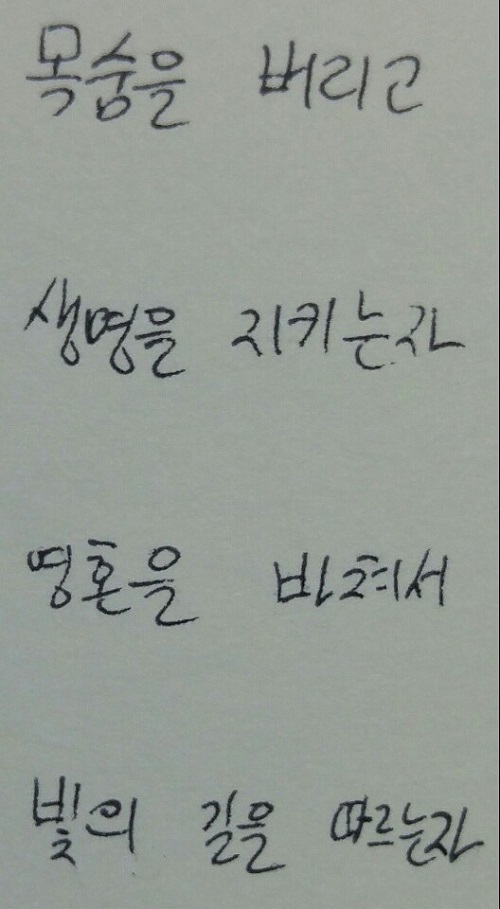 목숨을 버리고
생명을 지키는자
영혼을 바쳐서
빛의 길을 따르는자